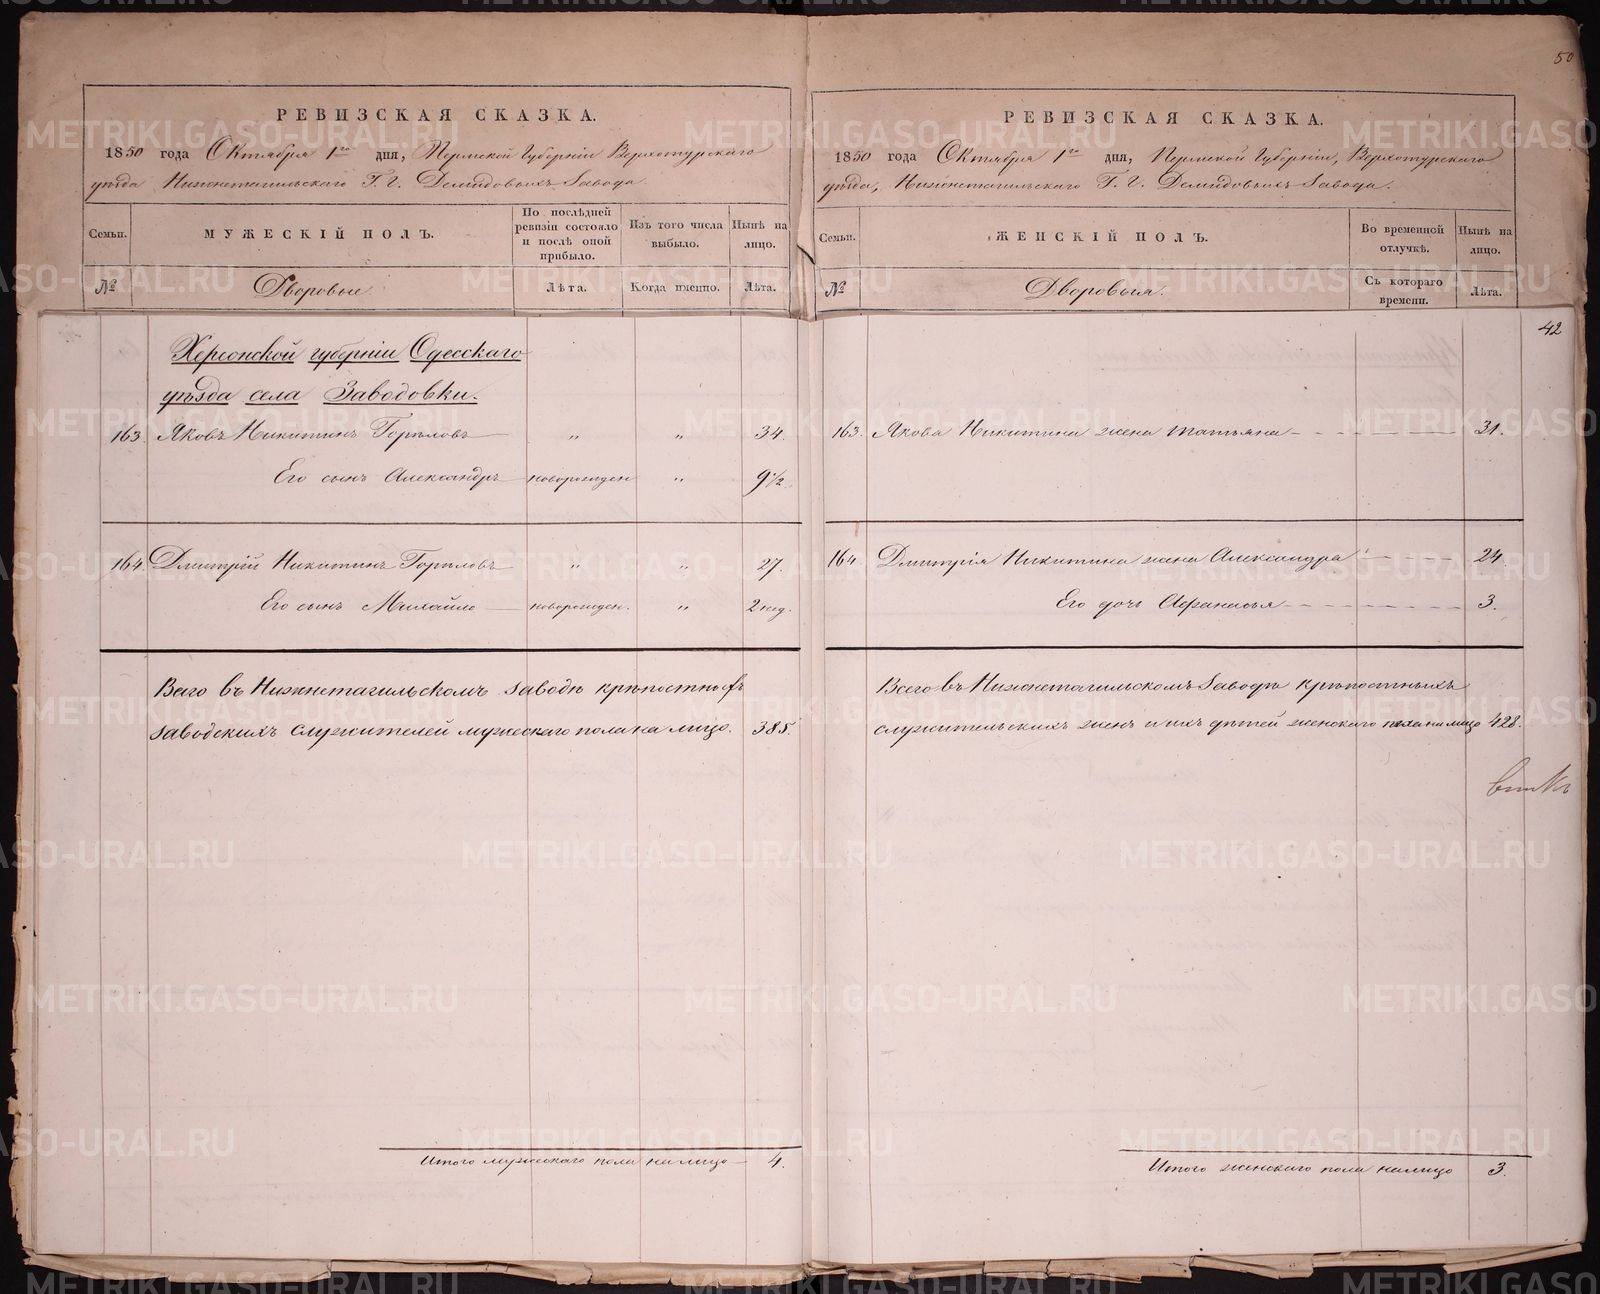 50
РЕВИЗСКАЯ СКАЗКА.
1850 года Октября 1го дня, Пермской Губерніи Верхотурскаго
уѣзда Нижнетагильскаго Г. Г. Демидовыхъ Завода.
Семьи.
МУЖЕСКІЙ ПОЛЪ.
По послѣдней ревизіи состояло и послѣ оной прибыло.
Изъ того числа выбыло.
Нынѣ на лицо.
№
Дворовые
Лѣта.
Когда именно.
Лѣта.
Херсонской губерніи Одесскаго
уѣзда села Заводовки.
163. Яковъ Никитинъ Горѣловъ " " 34.
Его сынъ Александръ новорожден " 9½
164. Дмитрій Никитинъ Горѣловъ " " 27.
Его сынъ Михайло новорожден. " 2 нед.
Всего въ Нижнетагильскомъ заводѣ крѣпостныхъ
заводскихъ служителей мужескаго пола на лицо. 385.
Итого мужескаго пола на лицо 4.
РЕВИЗСКАЯ СКАЗКА.
1850 года Октября 1го дня, Пермской Губерніи, Верхотурскаго
уѣзда, Нижнетагильскаго Г. Г. Демидовыхъ Завода.
Семьи.
ЖЕНСКІЙ ПОЛЪ.
Во временной отлучкѣ.
Нынѣ на лицо.
№
Дворовыя.
Съ котораго времени.
Лѣта.
42
163. Якова Никитина жена Татьяна 31.
164. Дмитрія Никитина жена Александра 24.
Его дочь Афанасья 3.
Всего въ Нижнетагильскомъ Заводѣ крѣпостныхъ
служительскихъ женъ и ихъ дѣтей женскаго пола на лицо 428.
Итого женскаго пола на лицо 3.
METRIKI.GASO-URAL.RU